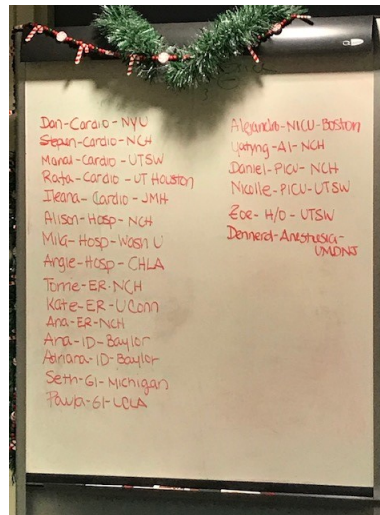 Dan-Cardio-NYU
Stepan-Cardio-NCH
Manal-Cardio-UTSW
Rata-Cardio-UT Houston
Ileana-Cardio-JMH
Alison-Hosp-NCH
Mila-Hosp-Wash U
Angie-Hosp-CHLA
Torrie-ER-NCH
Kate-ER-UConn
Ana-ER-NCH
Ana-ID-Baylor
Adriana-ID-Baylor
Seth-GI-Michigan
Paula-GI-UCLA
Alexandra-NICU-Boston
Yatyng-AI-NCH
Daniel-PICU-NCH
Nicolle-PICU-UTSW
Zoe-H/O-UTSW
Dennerd-Anesthesia-
UMDNJ